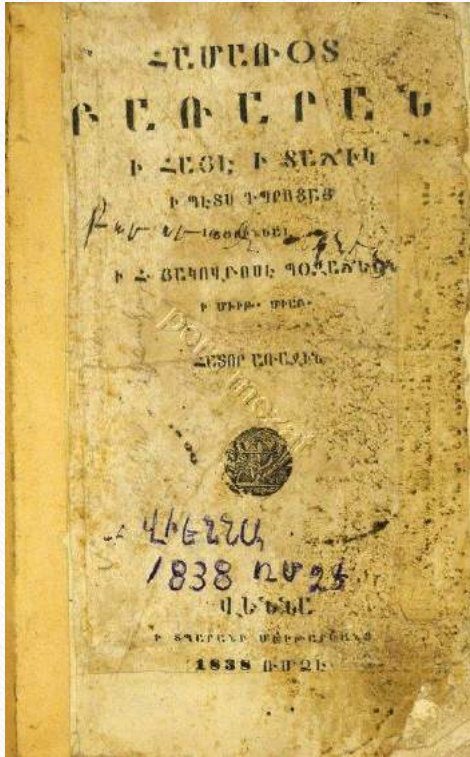 ՀԱՄԱՌՕՏ
ԲԱՌԱՐԱՆ
Ի ՀԱՅԷ Ի ՏԱՃԻԿ
Ի ՊԷՏՍ ԴՊՐՈՑԱՑ
ՅՕՐԻՆԵԱԼ
Ի Հ. ՅԱԿՈՎԲՈՍԷ ՊՕԶԱՃԵԱՆ
Ի ՄԽԻԹ. ՄԻԱԲ.
ՀԱՏՈՐ ԱՌԱՋԻՆ
ՎԻԵՆՆԱ
1838 ՌՄՁԷ
ՎԻԵՆՆԱ
Ի ՏՊԱՐԱՆԻ ՄԽԻԹԱՐԵԱՆՑ
1838 ՌՄՁԷ